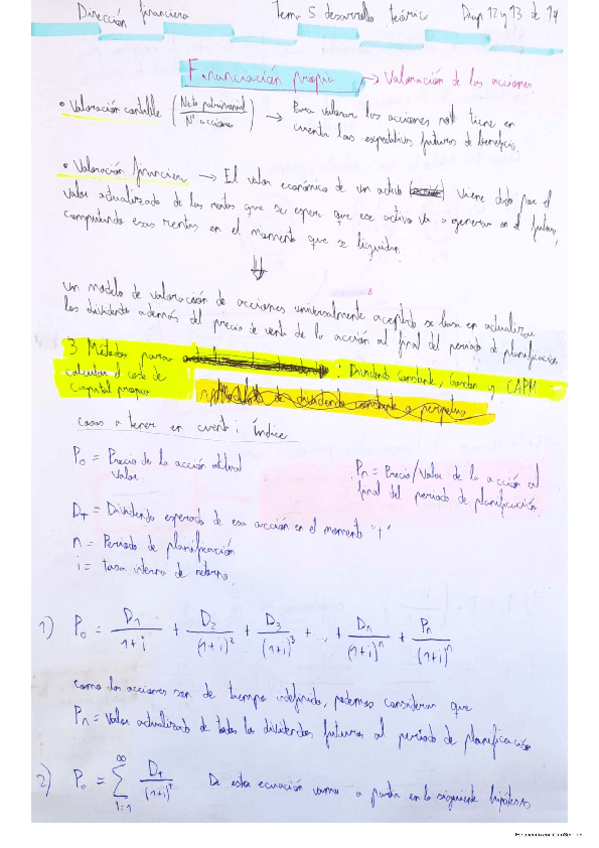 Dirección financiera Tema 5 desarrollo teórico Diap 12 y 13 de 14
Financiación propia → Valoración de las acciones.
• Valoración contable (Neto patrimonial / Nº acciones) → Para valorar las acciones not tiene en
cuenta las expectativas futuras de beneficio.
• Valoración financiera → El valor económico de un activo viene dado por el
valor actualizado de las rentas que se espera que ese activo va a generar en el futuro,
computando esas rentas en el momento que se liquidan.
⇓
Un modelo de valoración de acciones universalmente aceptado se basa en actualizar
los dividendos además del precio de venta de la acción al final del periodo de planificación
3 Métodos para : Dividendo constante, Gordon y CAPM
calcular el coste de
capital propio
de dividendo constante o perpetuo
cosas a tener en cuenta: Índice
P₀ = Precio de la acción actual
Valor
Pn = Precio/Valor de la acción al
final del periodo de planificación
DT = Dividendo esperado de esa acción en el momento "t"
n = Periodo de planificación
i = tasa interna de retorno
1) P₀ = D₁/(1+i) + D₂/(1+i)² + D₃/(1+i)³ + ... + Dn/(1+i)ⁿ + Pn/(1+i)ⁿ
como las acciones son de tiempo indefinido, podemos considerar que
Pn = Valor actualizado de todos los dividendos futuros al periodo de planificación
2) P₀ = ∞ Σ t=1 DT/(1+i)ᵀ De esta ecuación vamos a partir en la siguiente hipótesis